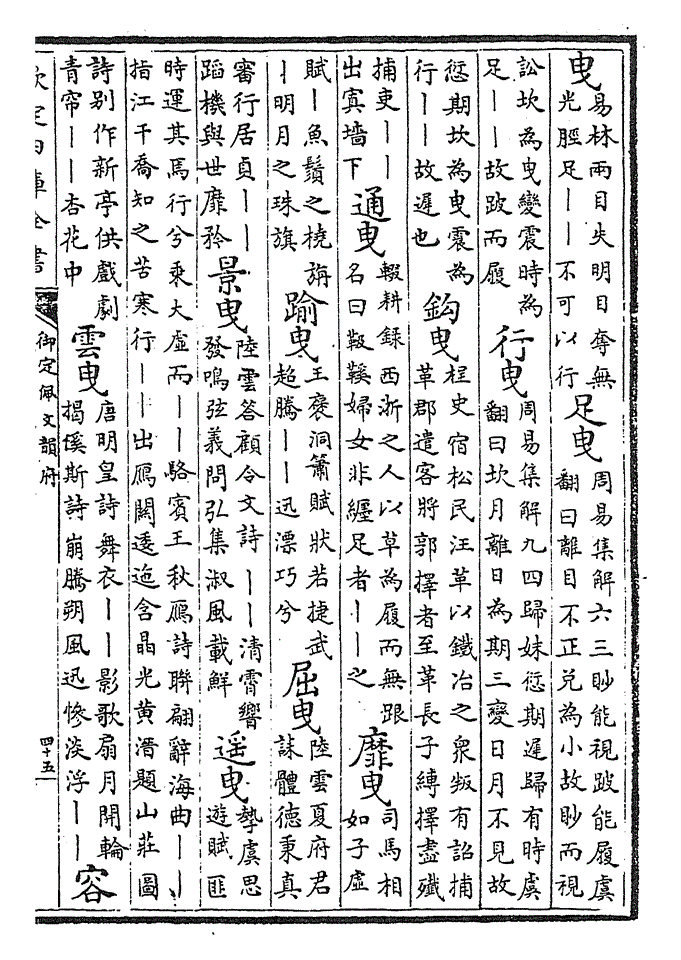 曳
易林兩目失明日奪無
光脛足丨丨不可以行
足曳
周易集解六三眇能視跛能履虞
翻曰離目不正兌為小故眇而視
訟坎為曳變震時為
足丨丨故跛而履
行曳
周易集解九四歸妹愆期遲歸有時虞
翻曰坎月離日為期三變日月不見故
愆期坎為曳震為
行丨丨故遲也
鈎曳
桯史宿松民汪革以鐵冶之衆叛有詔捕
革郡遣客將郭擇者至革長子縛擇盡殱
捕吏丨丨
出寘墻下
通曳
輟耕録西浙之人以草為履而無跟
名曰靸鞵婦女非纏足者丨丨之
靡曳
司馬相
如子虛
賦丨魚鬚之橈旃
丨明月之珠旗
踰曳
王褒洞簫賦狀若捷武
超騰丨丨迅漂巧兮
屈曳
陸雲夏府君
誄體德秉真
審行居貞丨丨
蹈機與世靡矜
景曳
陸雲答顧令文詩丨丨清霄響
發鳴弦義問弘集淑風載鮮
遥曳
摯虞思
遊賦匪
時運其焉行兮乘大虛而丨丨駱賓王秋鴈詩聯翩辭海曲丨丨
指江干喬知之苦寒行丨丨出鴈闕逶迤含晶光黄溍題山莊圖
詩别作新亭供戲劇
青帘丨丨杏花中
雲曳
唐明皇詩舞衣丨丨影歌扇月開輪
揭傒斯詩崩騰朔風迅慘淡浮丨丨
容
欽定四庫全書
御定佩文韻府
四十五